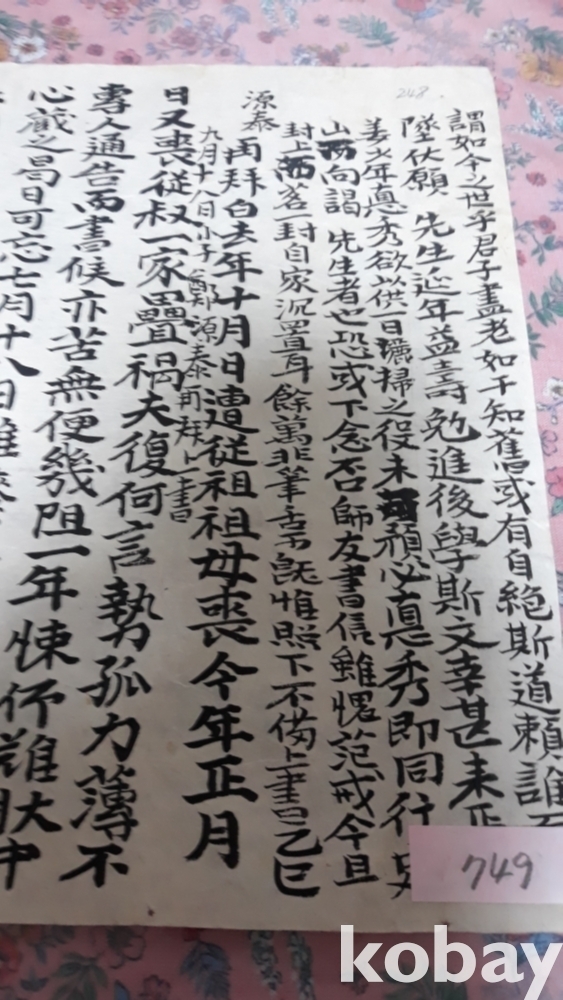 248.
謂如今之世乎君子盡老如干知舊或有自絕斯道賴誰
墜伏願 先生延年益壽勉進後學斯文幸甚未
姜少年悳秀欲供一日灑掃之役未 顔必悳秀即同行
山 向謁 先生者也恐或下念否師友書信雖愧范戒今且
封上 茗一封自家沉置耳餘萬非筆舌 旣惟照下不備上書己巳
九月十八日小子鄭源泰再拜上書
源泰
再拜白去年十月日遭從祖祖母喪今年正月
日又喪從叔一家疊禍夫復何言勢孤力薄不
專人通告而書候亦苦無便幾阻一年悚仄雖
心藏之曷日可忘七月十八日
749
kobay